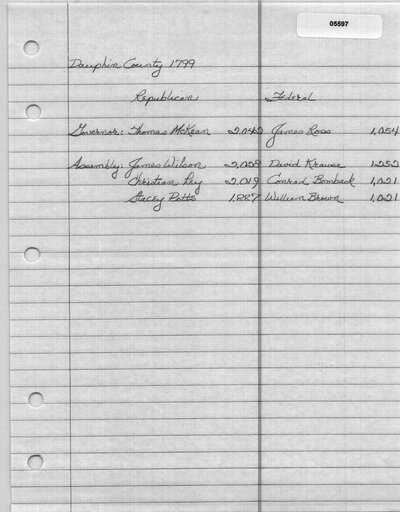 05597
Dauphin County 1799
Republican Federal
Governor: Thomas McKean 2,042 James Ross 1,054
Assembly: James Wilson 2,058 David Krause 1252
Christian Ley 2,019 Conrad Bomback 1,021
Stacey Potts 1,887 William Brown 1,021